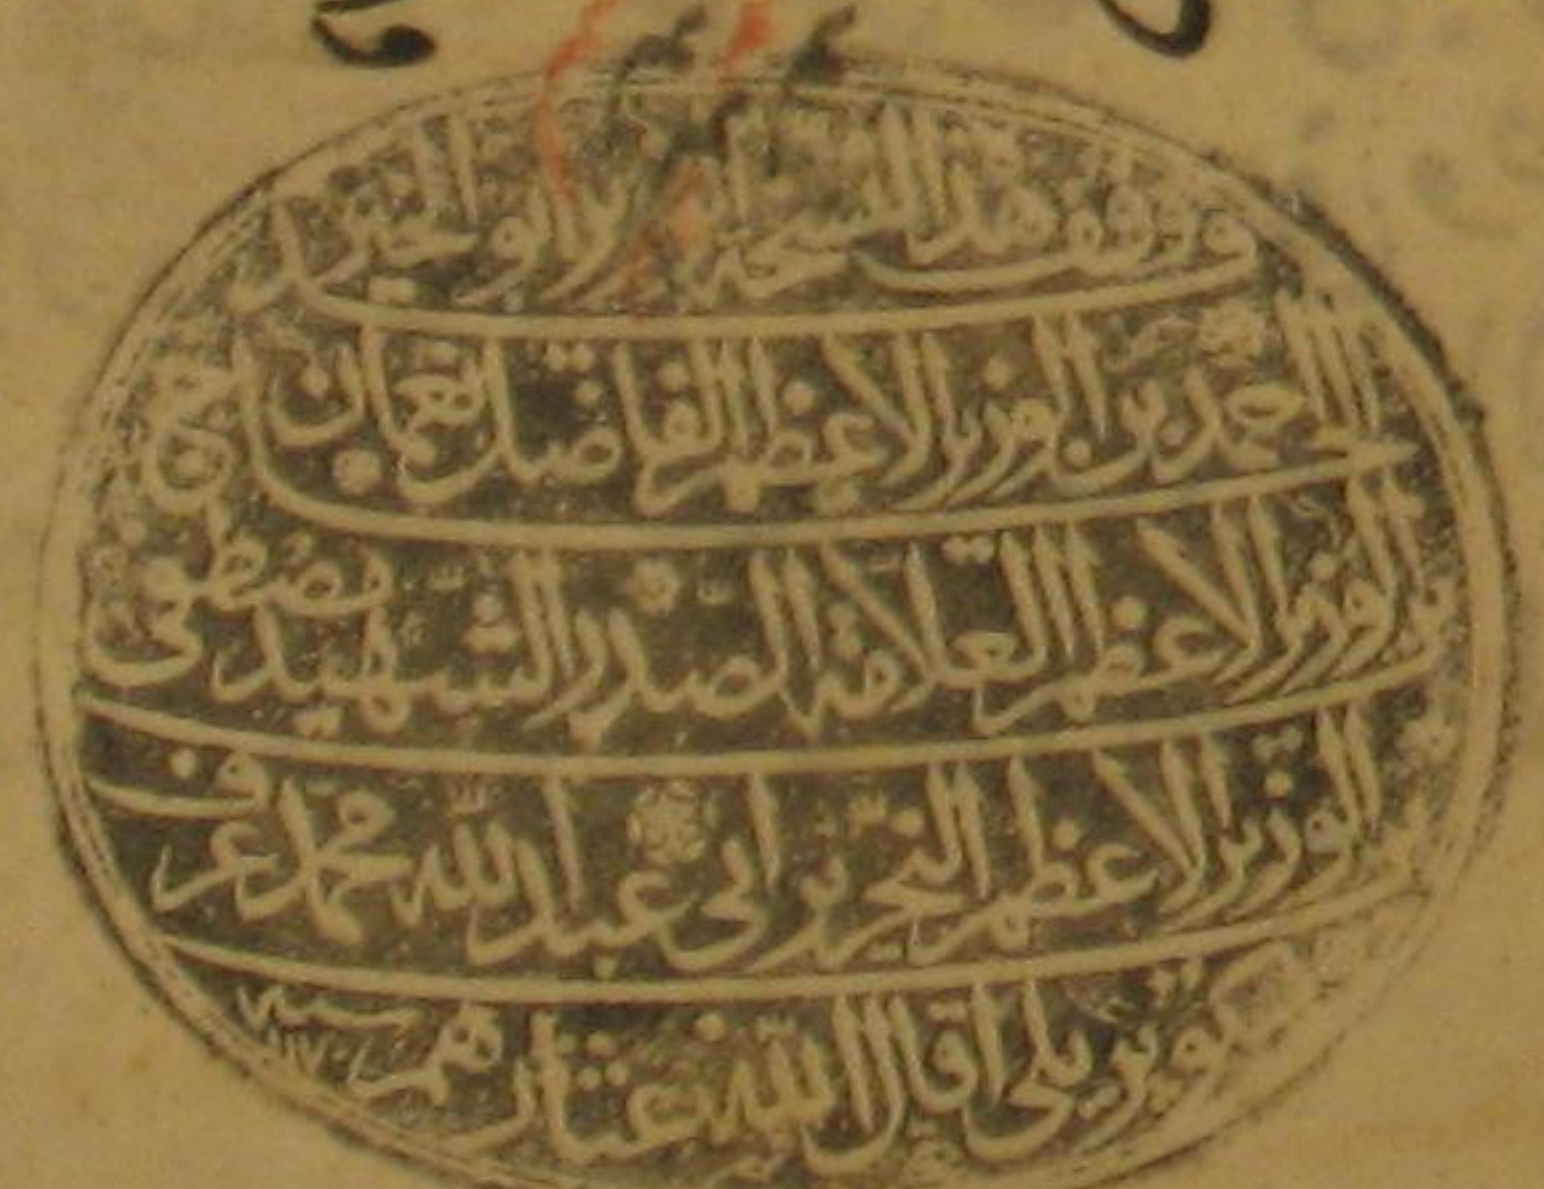 وقف هذه النسخة الوزير ابو الخير
الحاج احمد بن الوزير الاعظم الفاضل نعمان
بن الوزير الاعظم العلامة الصدر الشهيد مصطفى
بن الوزير الاعظم النحرير ابي عبد الله محمد عرف
بكوبريلى اقال الله عثارهم سنه